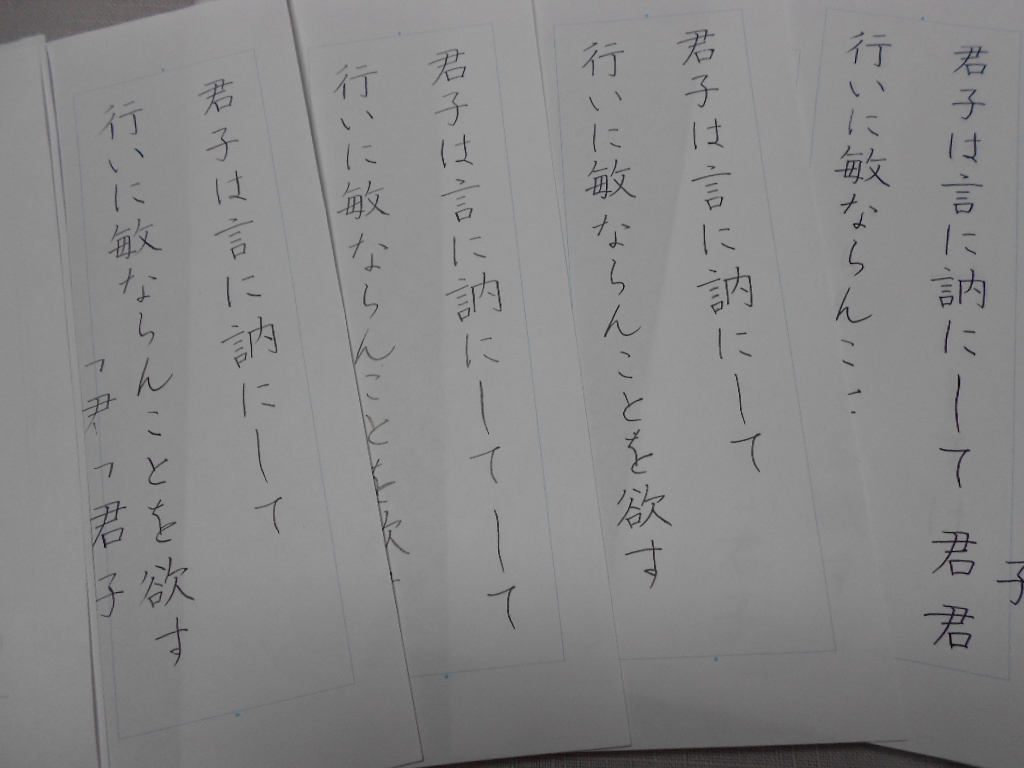 君子は言に訥にして君君
子
行いに敏ならんこ
君子は言に訥にして
行いに敏ならんことを欲す
君子は言に訥にしてして
行いに敏ならんことを欲
君子は言に訥にして
行いに敏ならんことを欲す
君君子